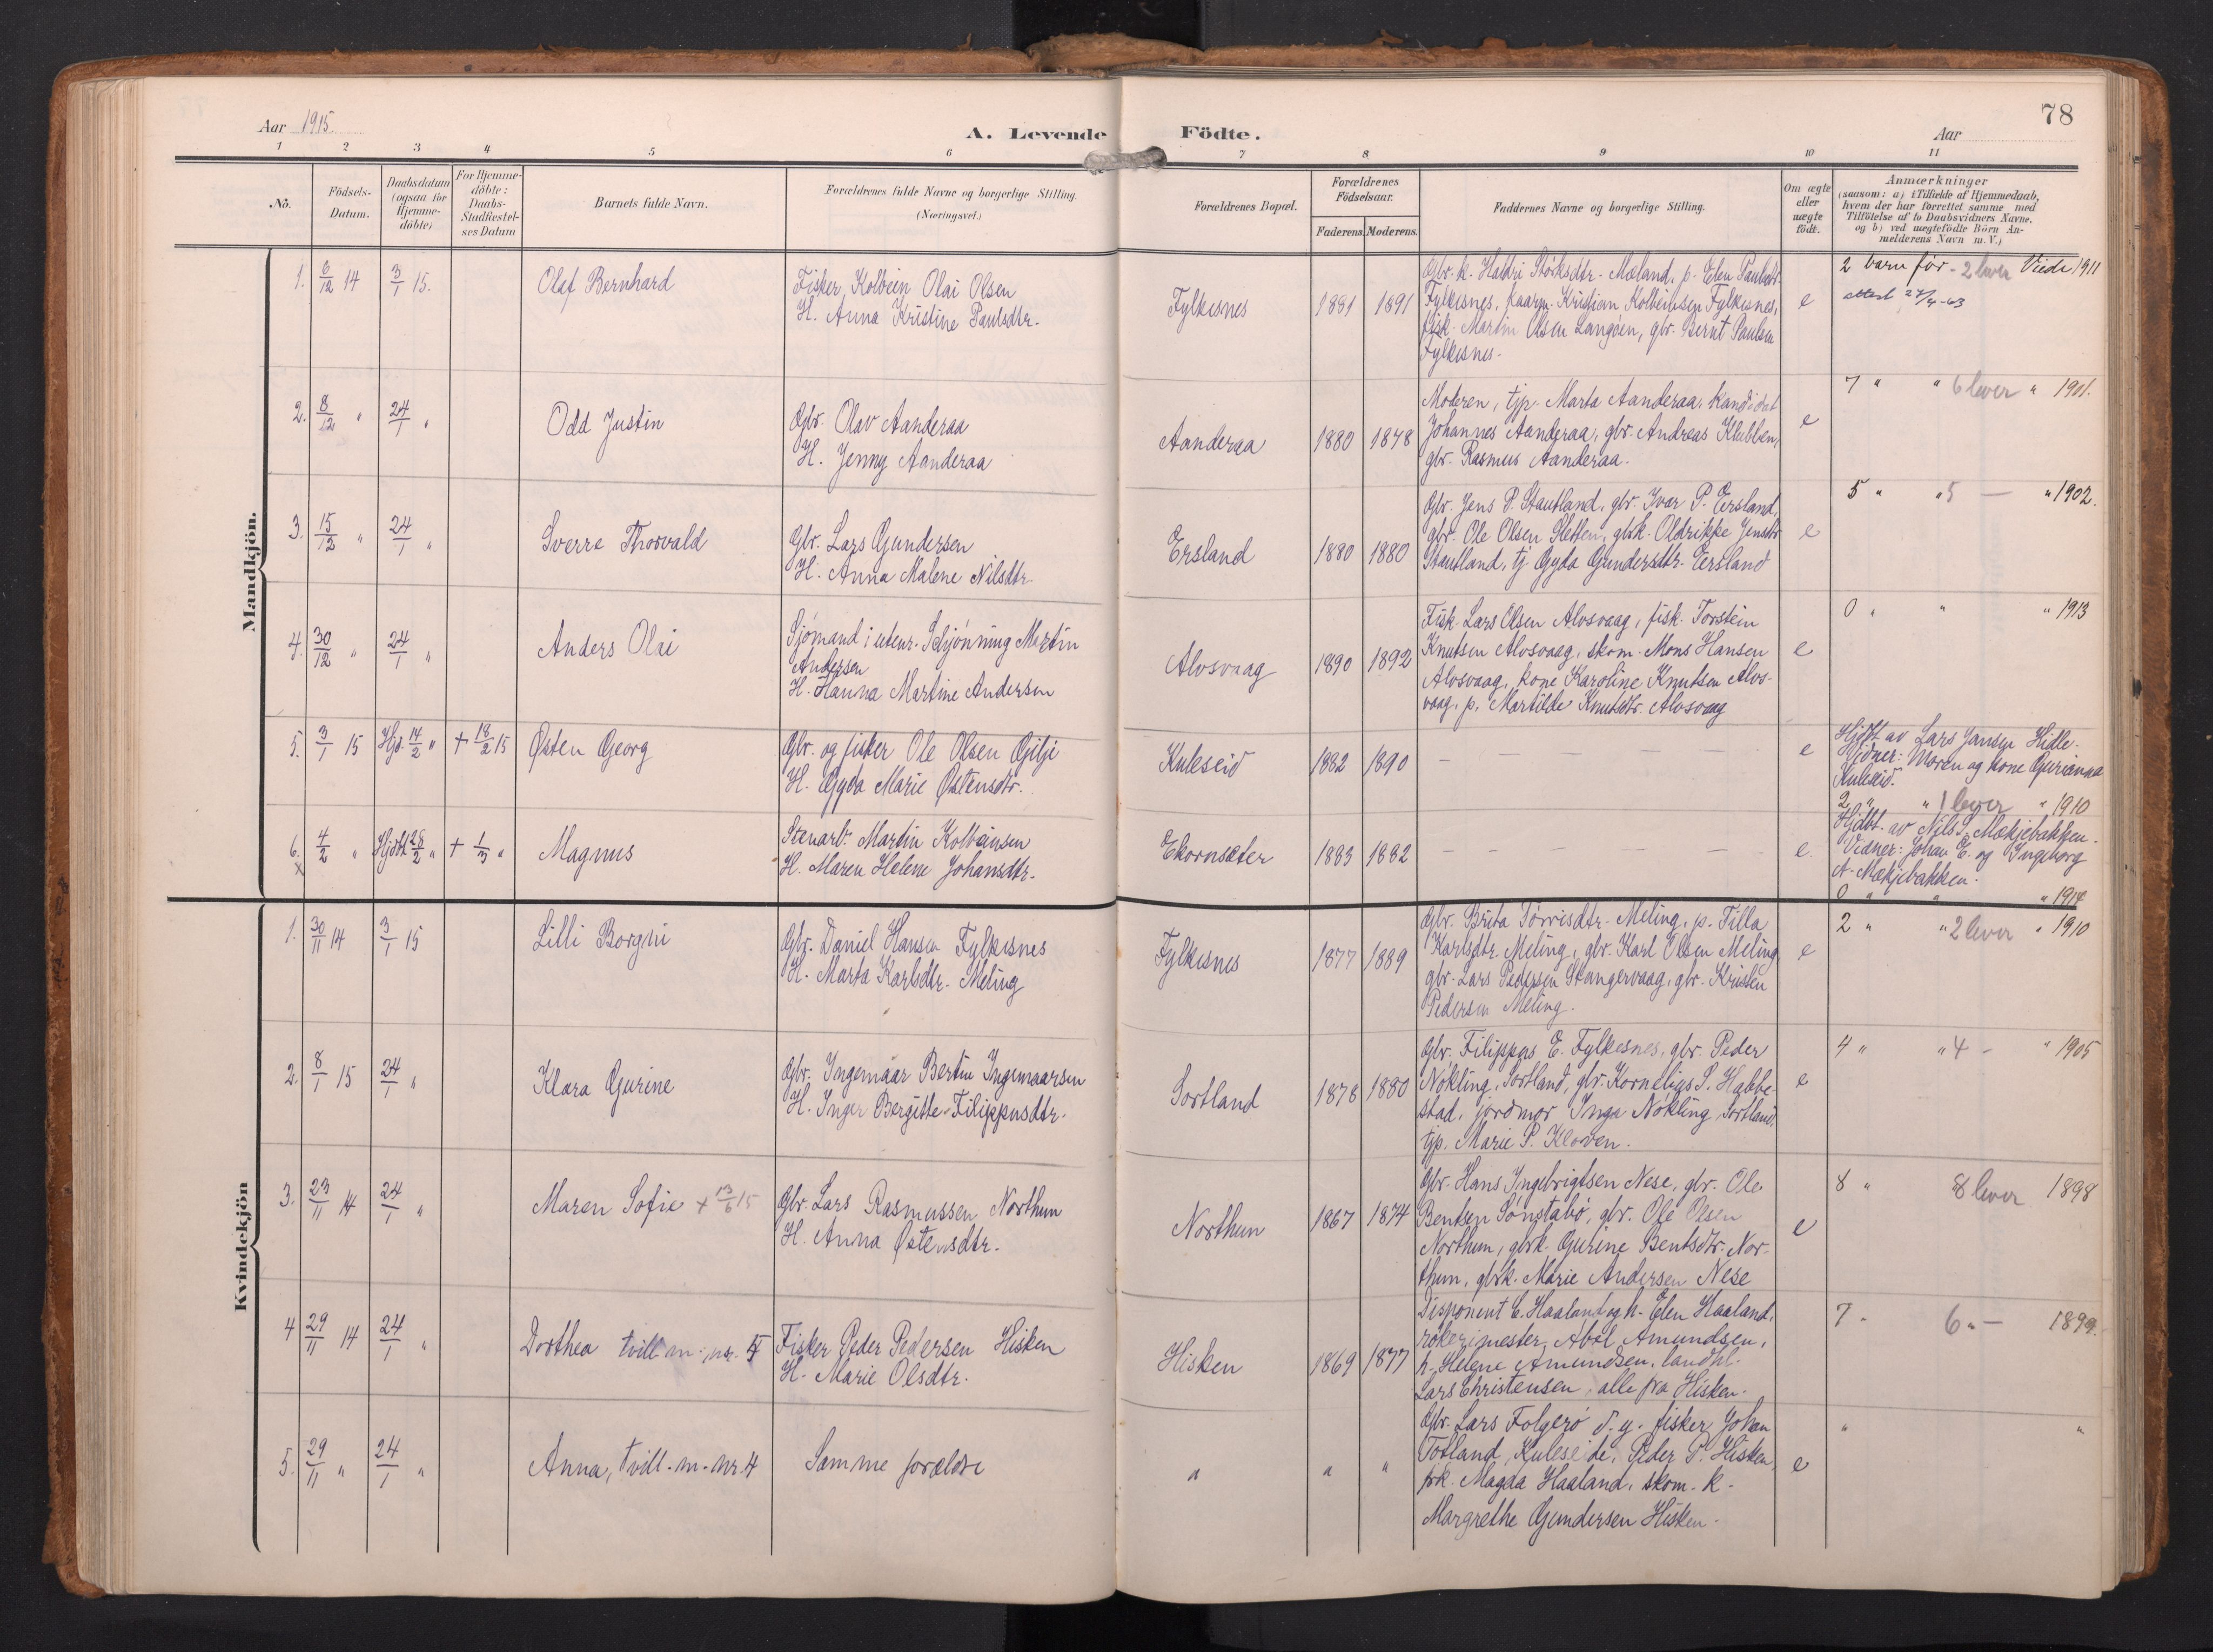 78
Aar 1915.
A. Levende Födte.
Aar
1 2 3 4 5 6 7 8 9 10 11
No.
Födsels-
Datum.
Daabsdatum
(ogsaa for
Hjemme-
döbte)
For Hjemme-
döbte:
Daabs-
Stadfæstel-
ses Datum
Barnets fulde Navn.
Forældrenes fulde Navne og borgerlige Stilling.
(Næringsvei.)
Forældrenes Bopæl.
Forældrenes
Födselsaar.
Faderens. Moderens.
Faddernes Navne og borgerlige Stilling.
Om ægte
eller
uægte
födt.
Anmærkninger
(saasom: a) i Tilfælde af Hjemmedaab,
hvem der har forrettet samme med
Tilföielse af to Daabsvidners Navne,
og b) ved uægtefödte Börn An-
melderens Navn m. V.)
Mandkjön.
1. 6/12 14 3/1 15. Olaf Bernhard
Fisker Kolbein Olai Olsen
H. Anna Kristine Paulsdtr.
Fylkesnes 1881 1891
Gbr. k. Haldri Störksdtr. Mæland, p. Elen Paulsdtr.
Fylkesnes, Kristian Kolbeinsen Fylkesnes,
fisk. Martin Olsen Langöen, gbr. Bernt Paulsen
Fylkesnes.
e
2 barn før - 2 lever Viede 1911
attest 27/4-63
2. 8/12 " 24/1 " Odd Justin
Gbr. Olav Aanderaa
H. Jenny Aanderaa
Aanderaa 1880 1878
Moderen, tjp. Marta Aanderaa, kandidat
Johannes Aanderaa, gbr. Andreas Klubben,
gbr. Rasmus Aanderaa.
e
7 " " 6 lever " 1901.
3. 15/12 " 24/1 " Sverre Thorvald
Gbr. Lars Gundersen
H. Anna Malene Nilsdtr.
Ersland 1880 1880
Gbr. Jens P. Stautland, gbr. Ivar P. Eersland,
gbr. Ole Olsen Sletten, gbrk. Oldrikke Jensdtr
Stautland, tj Gyda Gundersdtr. Eersland
e
5 " " 5 — " 1902.
4. 30/12 " 24/1 " Anders Olai
Sjømand i utenr. Schjønning Martin
Andersen
H. Hanna Martine Andersen
Alvsvaag 1890 1892
Fisk. Lars Olsen Alvsvaag, fisk. Torstein
Knutsen Alvsvaag, skom. Mons Hansen
Alvsvaag, kone Karoline Knutsen Alvs-
vaag, p. Martilde Knutsdtr. Alvsvaag
e
0 " " " 1913
5. 3/1 15 Hjd. 14/2 " + 18/2 15 Østen Georg
Gbr. og fisker Ole Olsen Gilje
H. Gyda Marie Østensdtr.
Kuleseid 1882 1890 — — — —
e
Hjdbt. av Lars Jansen Hidle.
Vidner: Moren og kone Gurianna
Kuleseid.
2 " " 1 lever " 1910
6. 4/2 " Hjdbt 28/2 " + 1/3 " Magnus
x
Stenarb. Martin Kolbeinsen
H. Maren Helene Johansdtr.
Ekornsæter 1883 1882 — — — —
e.
Hjdbt. av Nils S. Mækjebakken.
Vidner: Johan E. og Ingeborg
N. Mækjebakken.
0 " " " 1914
Kvindekjön
1. 30/11 14 3/1 15 Lilli Borgni
Gbr. Daniel Hansen Fylkesnes
H. Marta Karlsdtr. Meling
Fylkesnes 1877 1889
Gbr. Brita Tørrisdtr. Meling, p. Tilla
Karlsdtr. Meling, gbr. Karl Olsen Meling
gbr. Lars Pedersen Stangervaag, gbr. Kristen
Pedersen Meling.
e
2 " " 2 lever " 1910
2. 8/1 15 24/1 " Klara Gurine
Gbr. Ingemaar Bertin Ingemaarsen
H. Inger Bergitte Filippusdtr.
Sortland 1878 1880
Gbr. Filippus E. Fylkesnes, gbr. Peder
Nökling, Sortland, gbr. Kornelius S. Habbe-
stad, jordmor Inga Nökling Sortland,
tjp. Marie P. Kloven.
e
4 " " 4 - " 1905
3. 23/11 14 24/1 " Maren Sofie + 13/6 15
Gbr. Lars Rasmussen Northun
H. Anna Østensdtr.
Northun 1867 1874
Gbr. Hans Ingebrigtsen Nese, gbr. Ole
Bentsen Sønstabø, gbr. Ole Olsen
Northun, gbrk. Gurine Bentsdtr. Nor-
thun, gbrk. Marie Andersen Nese
e
8 " 8 lever 1898
4 29/11 14 24/1 " Dorthea tvill. m. nr. 5
Fisker Peder Pedersen Hisken
H. Marie Olsdtr.
Hisken 1869 1877
Disponent E. Haaland og h. Elen Haaland,
rökerimester Abel Amundsen,
h. Helene Amundsen, landhl.
Lars Christensen, alle fra Hisken.
7 " 6 " — 1899.
5. 29/11 " 24/1 " Anna, tvill. m. nr. 4
Samme forældre
" " "
Gbr. Lars Folgerö d. y. fisker Johan
Totland, Kuleseide, Peder P. Hisken,
frk. Magda Haaland, skom. k.
Margrethe Gundersen Hisken.
e
" "